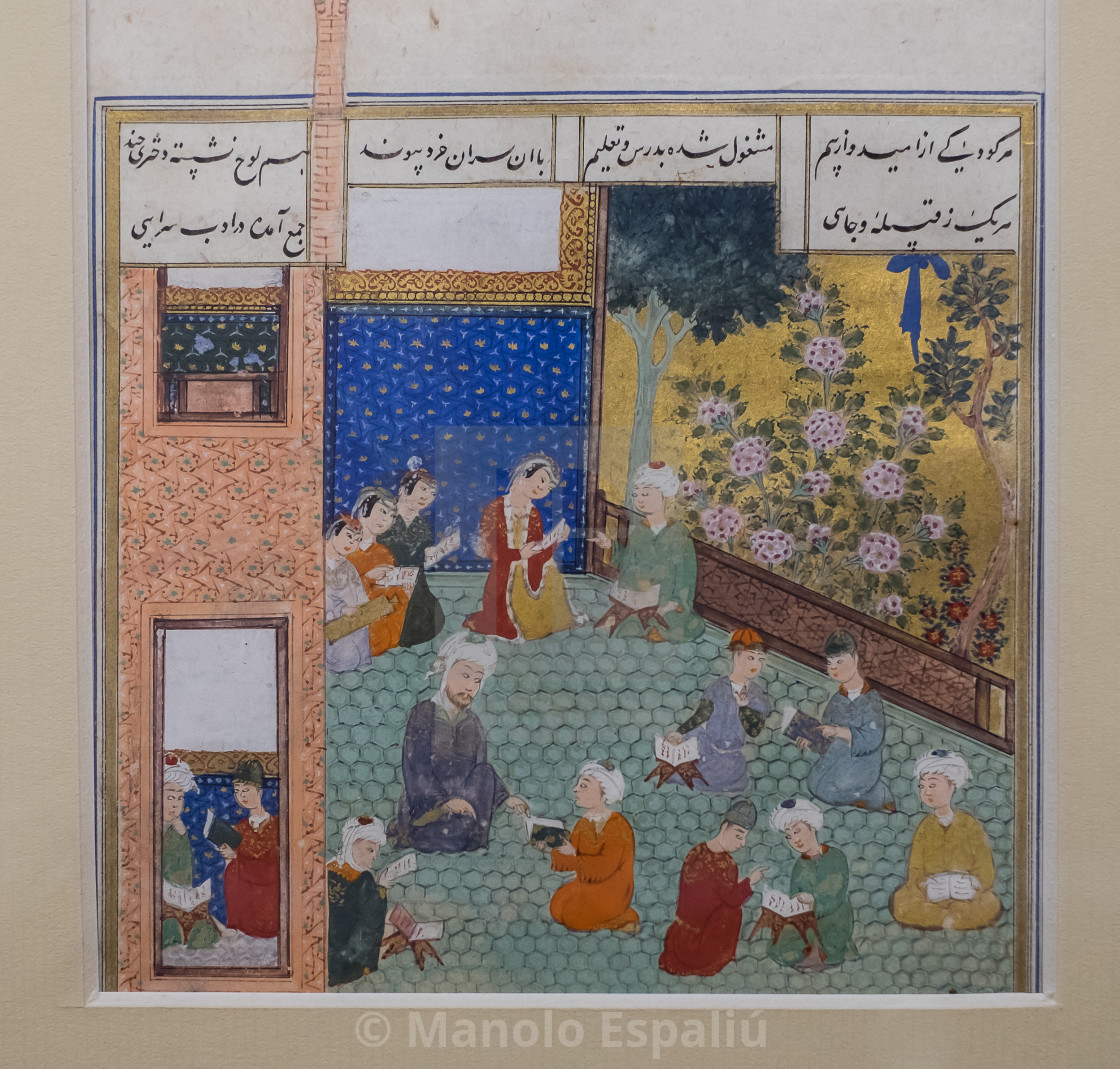 هر کودکی از امید و از بیم مشغول شده بدرس و تعلیم با ان پسران خرد پیوند هم لوح نشسته دختری چند
هر یک ز قبیلهٔ و جایی جمع آمده در ادب سرایی
© Manolo Espaliú